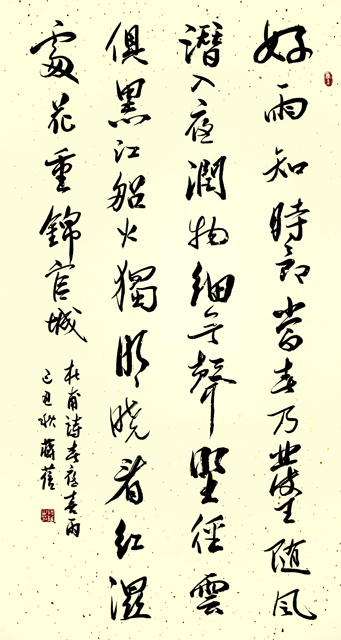 好雨知時節當春乃發生随風
潛入夜潤物細无聲野徑雲
俱黑江船火獨明曉看紅濕
處花重錦官城
杜甫詩春夜喜雨
己丑秋